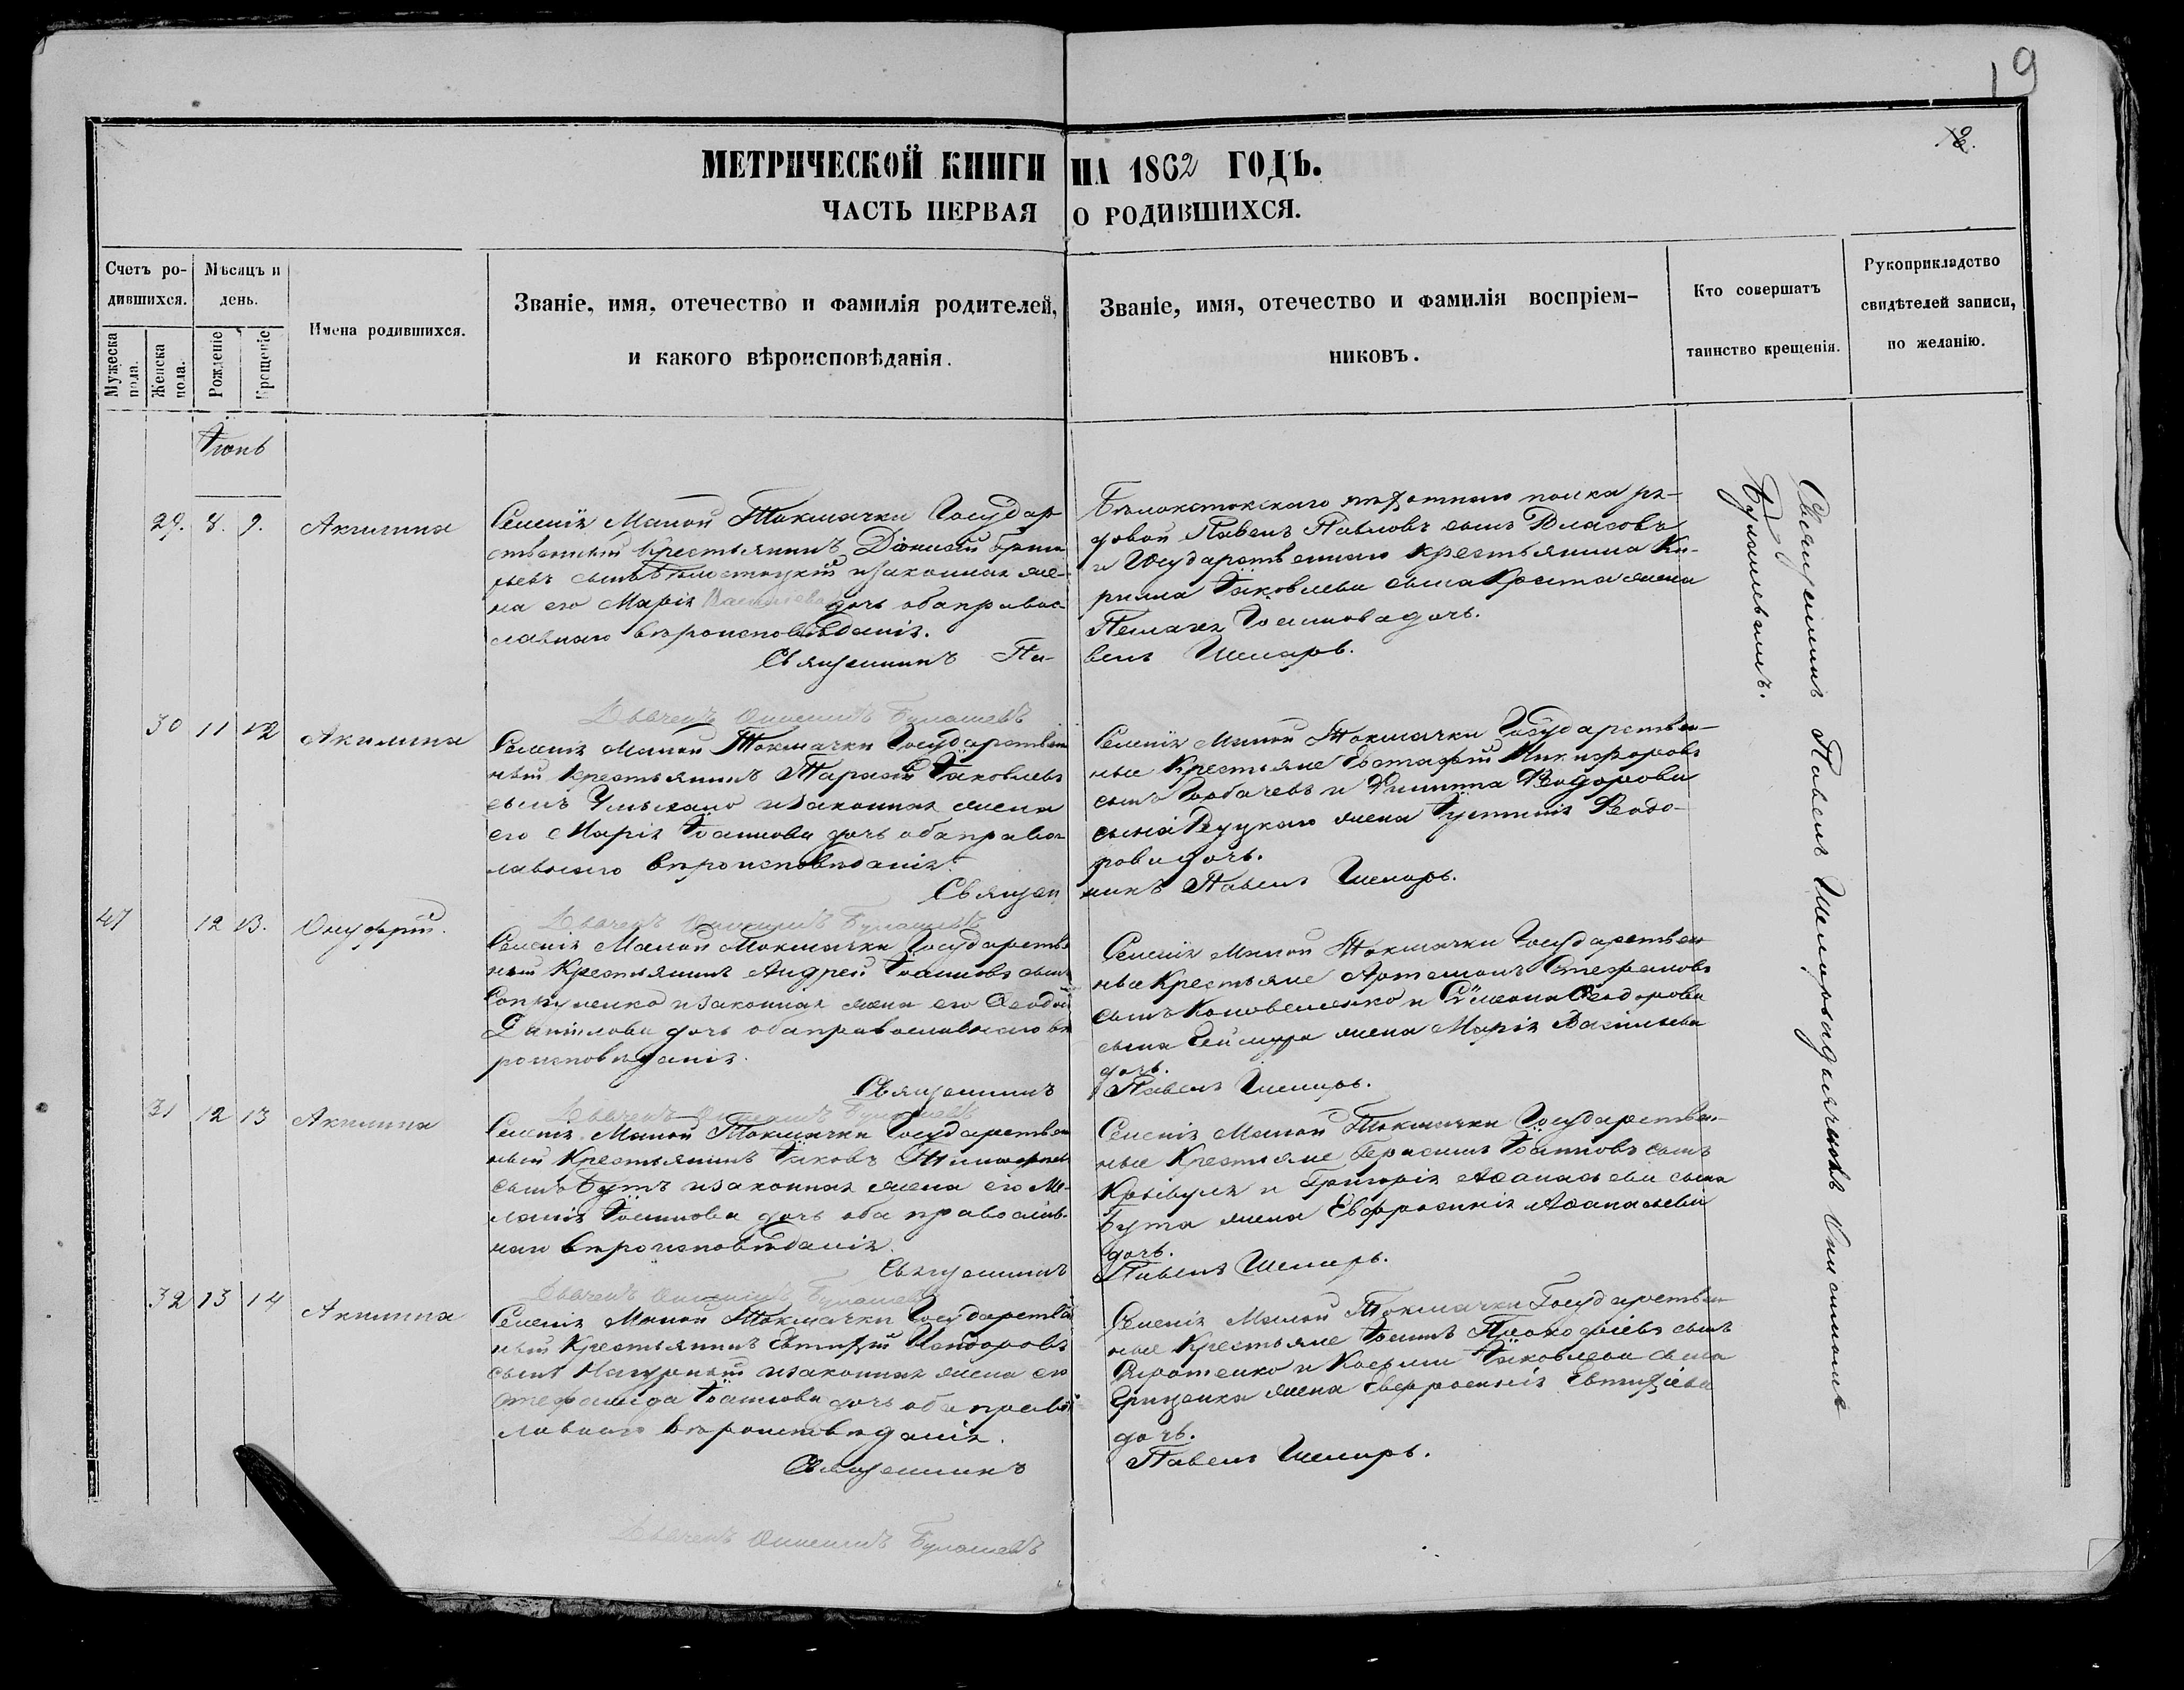 19
МЕТРИЧЕСКОЙ КНИГИ НА 1862 ГОДЪ.
ЧАСТЬ ПЕРВАЯ О РОДИВШИХСЯ.
Счетъ ро-
дившихся.
Мѣсяцъ и
день.
Мужеска
пола.
Женска
пола.
Рожденіе
Крещеніе
Имена родившихся.
Званіе, имя, отечество и фамилія родителей,
и какого вѣроисповѣданія.
Званіе, имя, отечество и фамилія воспріем-
никовъ.
Кто совершатъ
таинство крещенія.
Рукоприкладство
свидѣтелей записи,
по желанію.
Іюнь
29. 8. 9. Акилина
Селенія Малой Токмачки Государ
ственный Крестьянинъ Діонисій
сынъ и законная же-
на его Марія Васильева дочь оба правос-
лавнаго вѣроисповѣданія.
Священникъ Па-
Бѣлостокскаго пѣхотнаго полка ря-
довой Павелъ Павловъ сынъ Власовъ
и Государственнаго крестьянина Ки-
рилла Іаковлева сына жена
Пелагея Іоаннова дочь.
велъ Шемарь.
30 11 12 Акилина
Дьячекъ Онисимъ Булашевъ
Селенія Малой Токмачки Государствен
ный Крестьянинъ Тарасій Іаковлевъ
сынъ и законная жена
его Марія Іоаннова дочь оба правос
лавнаго вѣроисповѣданія.
Священ
Селенія Малой Токмачки Государствен-
ные Крестьяне Евстафій Никифоровъ
сынъ Горбачевъ и Филиппа Ѳеодорова
сына Руцкаго жена Іустинія Ѳеодо-
рова дочь.
никъ Павелъ Шемарь.
47 12 13. Онуфрій.
Дьячекъ Онисимъ Булашевъ
Селенія Малой Токмачки Государствен
ный Крестьянинъ Андрей Іоанновъ сынъ
и законная жена его Ѳеодо
Даніилова дочь оба православнаго вѣ
роисповѣданія.
Священникъ
Селенія Малой Токмачки Государствен
ные Крестьяне Артемонъ Стефановъ
сынъ Коноваленко и Симеона Ѳеодорова
сына жена Марія Васильева
дочь.
Павелъ Шемарь.
31 12 13 Акилина
Дьячекъ Онисимъ Булашевъ
Селенія Малой Токмачки Государствен
ный Крестьянинъ Іаковъ
сынъ Бутъ и законная жена его Ме-
ланія Іоаннова дочь оба православ-
наго вѣроисповѣданія.
Священникъ
Селенія Малой Токмачки Государствен-
ные Крестьяне Герасимъ Іоанновъ сынъ
Кривуля и Григорія Аѳанасьева сына
Бута жена Евфросинія Аѳанасьева
дочь.
Павелъ Шемарь.
32 13 14 Акилина
Дьячекъ Онисимъ Булашевъ
Селенія Малой Токмачки Государствен
ный Крестьянинъ Евтихій Исидоровъ
сынъ Нагорный и законная жена его
Стефанида Іоаннова дочь оба право
лавнаго вѣроисповѣданія.
Священникъ
Селенія Малой Токмачки Государствен
ные Крестьяне Іоаннъ сынъ
и Козьмы Іаковлева сына
Гриценка жена Евфросинія Евтихіева
дочь.
Павелъ Шемарь.
Дьячекъ Онисимъ Булашевъ
Священникъ Павелъ Шемарь и дьячекъ Онисимъ
Булашевъ.